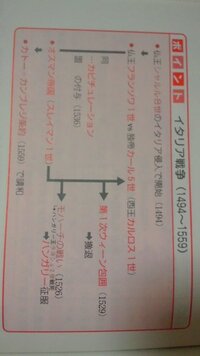 ポイント イタリア戦争（1494〜1559）
仏王シャルル8世のイタリア侵入で開始（1494）
仏王フランソワ1世 vs 独帝カール5世（西王カルロス1世）
同盟
…カピチュレーションの付与（1536）
オスマン帝国（スレイマン1世）
第1次ウィーン包囲（1529）
➡撤退
モハーチの戦い（1526）
➡ハンガリー征服
カトー=カンブレジ条約（1559）で講和